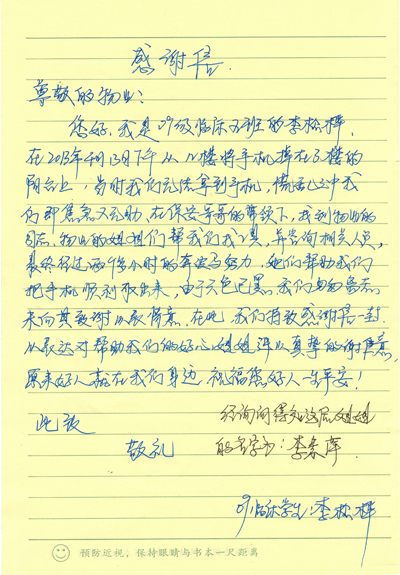 感谢信.
尊敬的物业:
您好,我是09级临床五班的李松桦,
在2013年4月13日下午从12楼将手机掉在3楼的
阳台上,当时我们无法拿到手机,慌乱之中我
们即焦急又无助,在保安哥哥的带领下,找到物业的
同志,物业的姐姐们帮我们找工具,并咨询相关人员,
最终经过两个半小时的奔波与努力,她们帮助我们
把手机顺利取出来,由于天色已黑,我们匆匆离去
未向其致谢以表情意.在此,我们特致感谢信一封
以表达对帮助我们的好心姐姐深以真挚的谢意,
原来好人就在我们身边,祝福您好人一生平安!
此致
敬礼
经询问得知这层姐姐
的名字为:李
09临床学生:李松桦
预防近视,保持眼睛与书本一尺距离